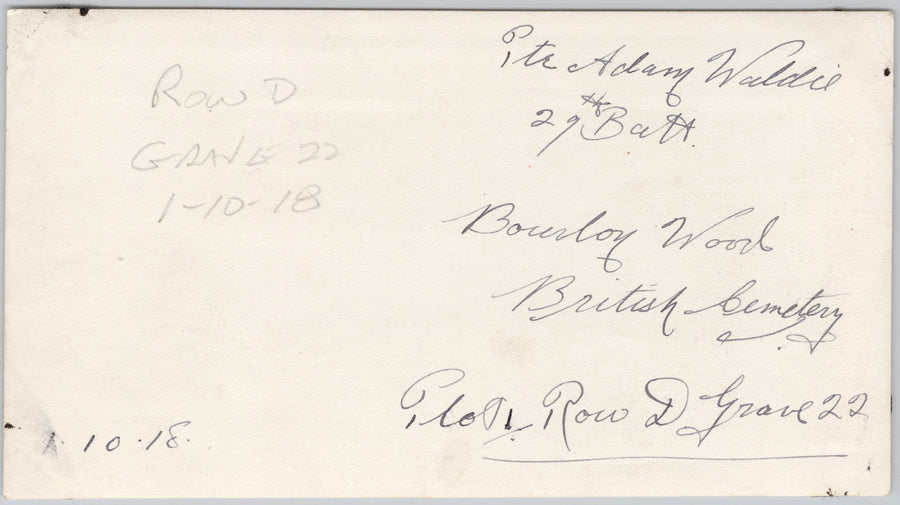 Pte Adam Waldie
29th Batt.
Row D
GRAVE 22
1-10-18
Bourlon Wood
British Cemetery
Plot 1, Row D Grave 22
1 10.18.